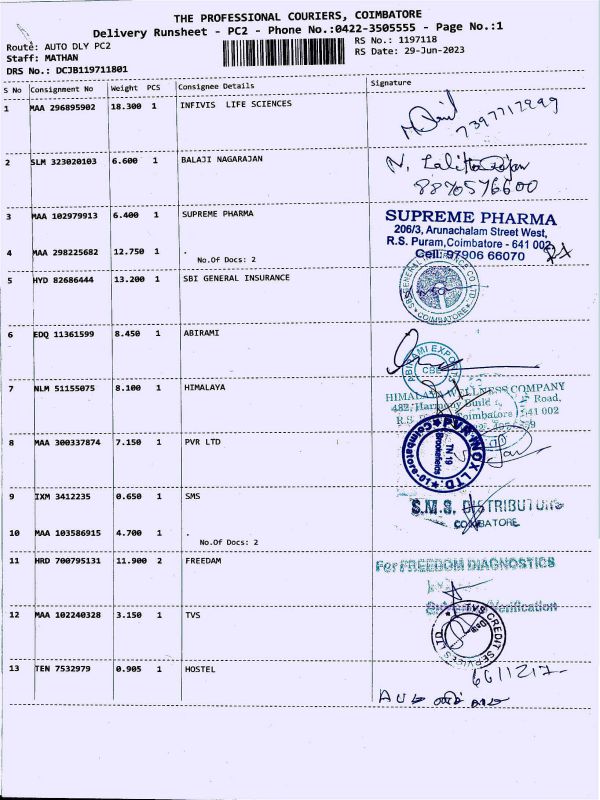 THE PROFESSIONAL COURIERS, COIMBATORE
Delivery Runsheet - PC2 - Phone No.:0422-3505555 - Page No.:1
Route: AUTO DLY PC2
RS No.: 1197118
Staff: MATHAN
RS Date: 29-Jun-2023
DRS No.: DCJB119711801
S No Consignment No Weight PCS Consignee Details Signature
1 MAA 296895902 18.300 1 INFIVIS LIFE SCIENCES
7397717299
2 SLM 323020103 6.600 1 BALAJI NAGARAJAN
N. Lalitha
8870576600
3 MAA 102979913 6.400 1 SUPREME PHARMA
SUPREME PHARMA
206/3, Arunachalam Street West,
R.S. Puram, Coimbatore - 641 002
Cell: 97906 66070
4 MAA 298225682 12.750 1 .
No.Of Docs: 2
5 HYD 82686444 13.200 1 SBI GENERAL INSURANCE
SBI GENERAL INSURANCE CO LTD
COIMBATORE
6 EDQ 11361599 8.450 1 ABIRAMI
ABIRAMI EXPO
CBE
7 NLM 51155075 8.100 1 HIMALAYA
HIMALAYA WELLNESS COMPANY
482, Harmony Build Road,
R.S. Coimbatore 641 002
8 MAA 300337874 7.150 1 PVR LTD
PVR INOX LTD.
TN 19
Brookefields
Coimbatore-01
9 IXM 3412235 0.650 1 SMS
S.M.S. DISTRIBUTORS
COIMBATORE
10 MAA 103586915 4.700 1 .
No.Of Docs: 2
11 HRD 700795131 11.900 2 FREEDAM
For FREEDOM DIAGNOSTICS
Verification
12 MAA 102240328 3.150 1 TVS
TVS CREDIT SERVICES LTD
13 TEN 7532979 0.905 1 HOSTEL
6611217